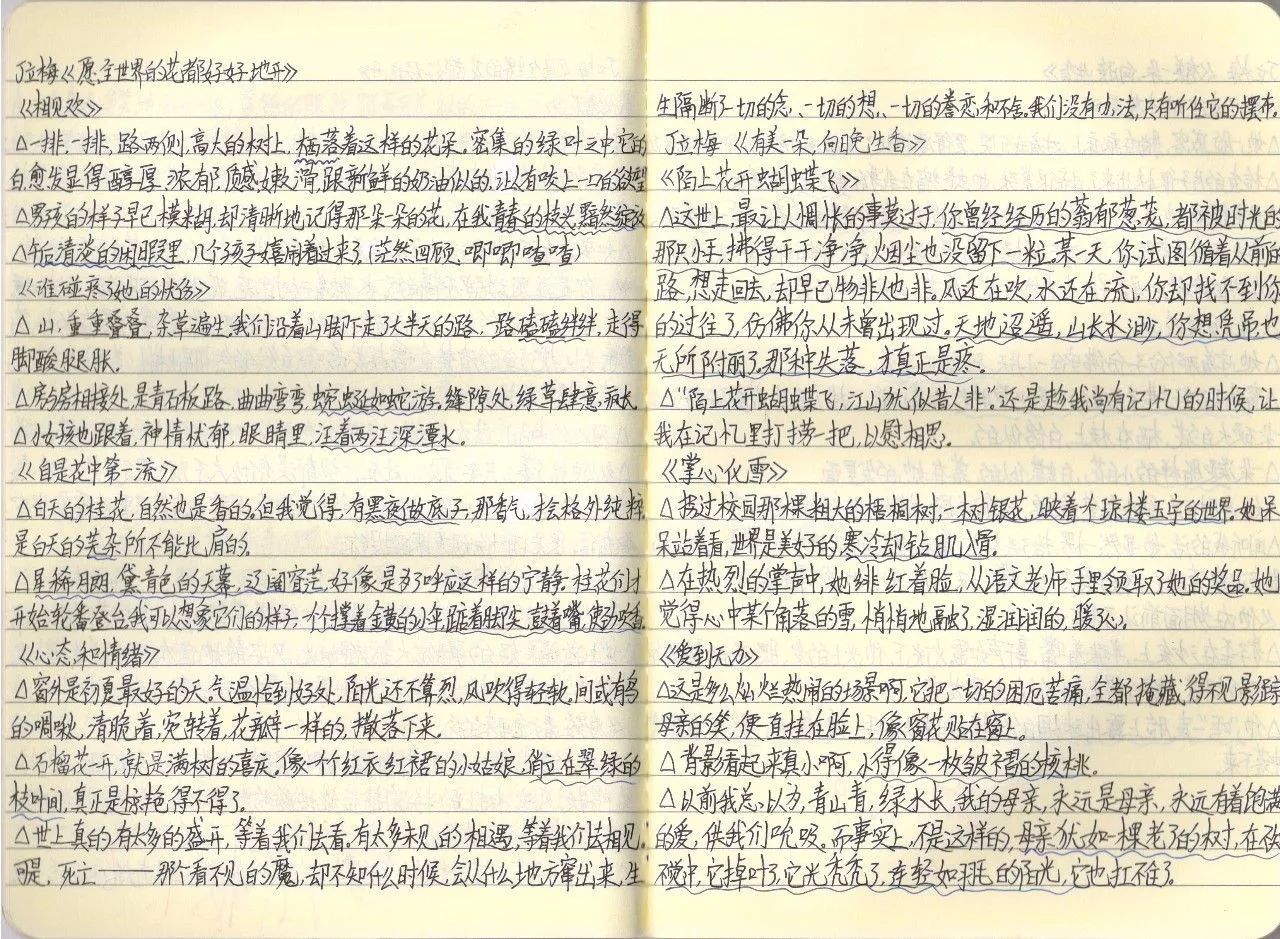 丁立梅《愿全世界的花都好好地开》
《相见欢》
△一排,一排,路两侧,高大的树上,栖落着这样的花朵。密集的绿叶之中,它的
白,愈发显得醇厚、浓郁,质感嫩滑,跟新鲜的奶油似的,让人有咬上一口的欲望
△男孩的样子早已模糊,却清晰地记得那朵一朵的花,在我青春的枝头,黯然绽放
△午后清淡的闲暇里,几个孩子嬉闹着过来了,(茫然四顾、唧唧喳喳)
《谁碰疼了她的忧伤》
△山,重重叠叠,杂草遍生,我们沿着山脚下走了大半天的路,一路磕磕绊绊,走得
脚酸腿胀。
△房与房相接处,是青石板路,曲曲弯弯,蜿蜒如蛇游。缝隙处,绿草肆意疯长
△小女孩也跟着,神情忧郁,眼睛里,汪着两汪深潭水。
《自是花中第一流》
△白天的桂花,自然也是香的。但我觉得,有黑夜做底子,那香气,才会格外纯粹,
是白天的芜杂所不能比肩的。
△星稀月朗,黛青色的天幕,辽阔苍茫,好像是为了呼应这样的宁静,桂花们才
开始轮番登台,我可以想象它们的样子,一个个撑着金黄的小伞,踮着脚尖,鼓着嘴,使劲吹香
《心态和情绪》
△窗外是初夏最好的天,气温恰到好处,阳光还不算烈,风吹得轻软,间或有鸟
的啁啾,清脆着,宛转着,花瓣一样的,撒落下来。
△石榴花一开,就是满树的喜庆。像一个个红衣红裙的小姑娘,俏立在翠绿的
枝叶间,真正是惊艳得不得了。
△世上真的有太多的盛开,等着我们去看,有太多未见的相遇,等着我们去相见。
可是,死亡——那个看不见的魔,却不知什么时候,会从什么地方窜出来,生
生隔断了一切的念、一切的想、一切的眷恋和不舍,我们没有办法,只有听任它的摆布。
丁立梅《有美一朵,向晚生香》
《陌上花开蝴蝶飞》
△这世上,最让人惆怅的事莫过于,你曾经经历的蓊郁葱茏,都被时光的
那只小手,拂得干干净净,烟尘也没留下一粒,某一天,你试图循着从前的
路,想走回去,却早已物非人也非。风还在吹,水还在流,你却找不到你
的过往了,仿佛你从未曾出现过。天地迢遥,山长水渺,你想凭吊也
无所附丽了,那种失落,才真正是疼。
△“陌上花开蝴蝶飞,江山犹似昔人非”。还是趁我尚有记忆的时候,让
我在记忆里打捞一把,以慰相思。
《掌心化雪》
△拐过校园那棵粗大的梧桐树,一树银花,映着个琼楼玉宇的世界。她呆
呆站着看,世界是美好的,寒冷却钻肌入骨。
△在热烈的掌声中,她绯红着脸,从语文老师手里领取了她的奖品,她
觉得心中某个角落的雪,悄悄地融了,湿润润的,暖了心。
《爱到无力》
△这是多么灿烂热闹的场景啊,它把一切的困厄苦痛,全都掩藏得不见影踪
母亲的笑,便一直挂在脸上,像窗花贴在窗上。
△背影看起来真小啊,小得像一枚皱褶的核桃。
△以前我总以为,青山青,绿水长,我的母亲,永远是母亲,永远有着饱满
的爱,供我们吮吸。而事实上,不是这样的,母亲犹如一棵老了的树,在不知不
觉中,它掉叶了,它光秃秃了,连轻如羽毛的阳光,它也扛不住了。